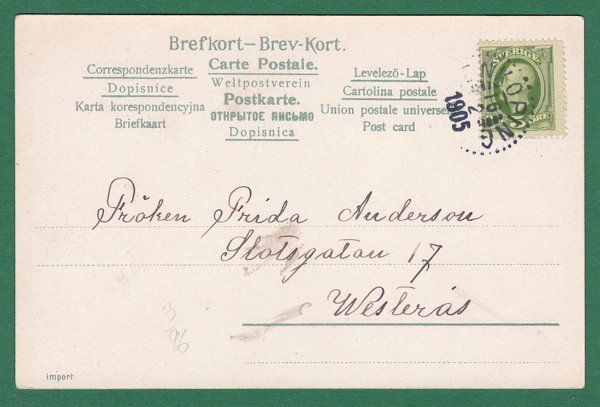 Brefkort–Brev-Kort.
Correspondenzkarte
Dopisnice
Karta korespondencyjna
Briefkaart
Carte Postale.
Weltpostverein
Postkarte.
ОТКРЫТОЕ ПИСЬМО
Dopisnica
Levelezö-Lap
Cartolina postale
Union postale universelle
Post card
SVERIGE
ÖRE
1905
Fröken Frida Anderson
Slotsgatan 17
Westerås
3/96
import.